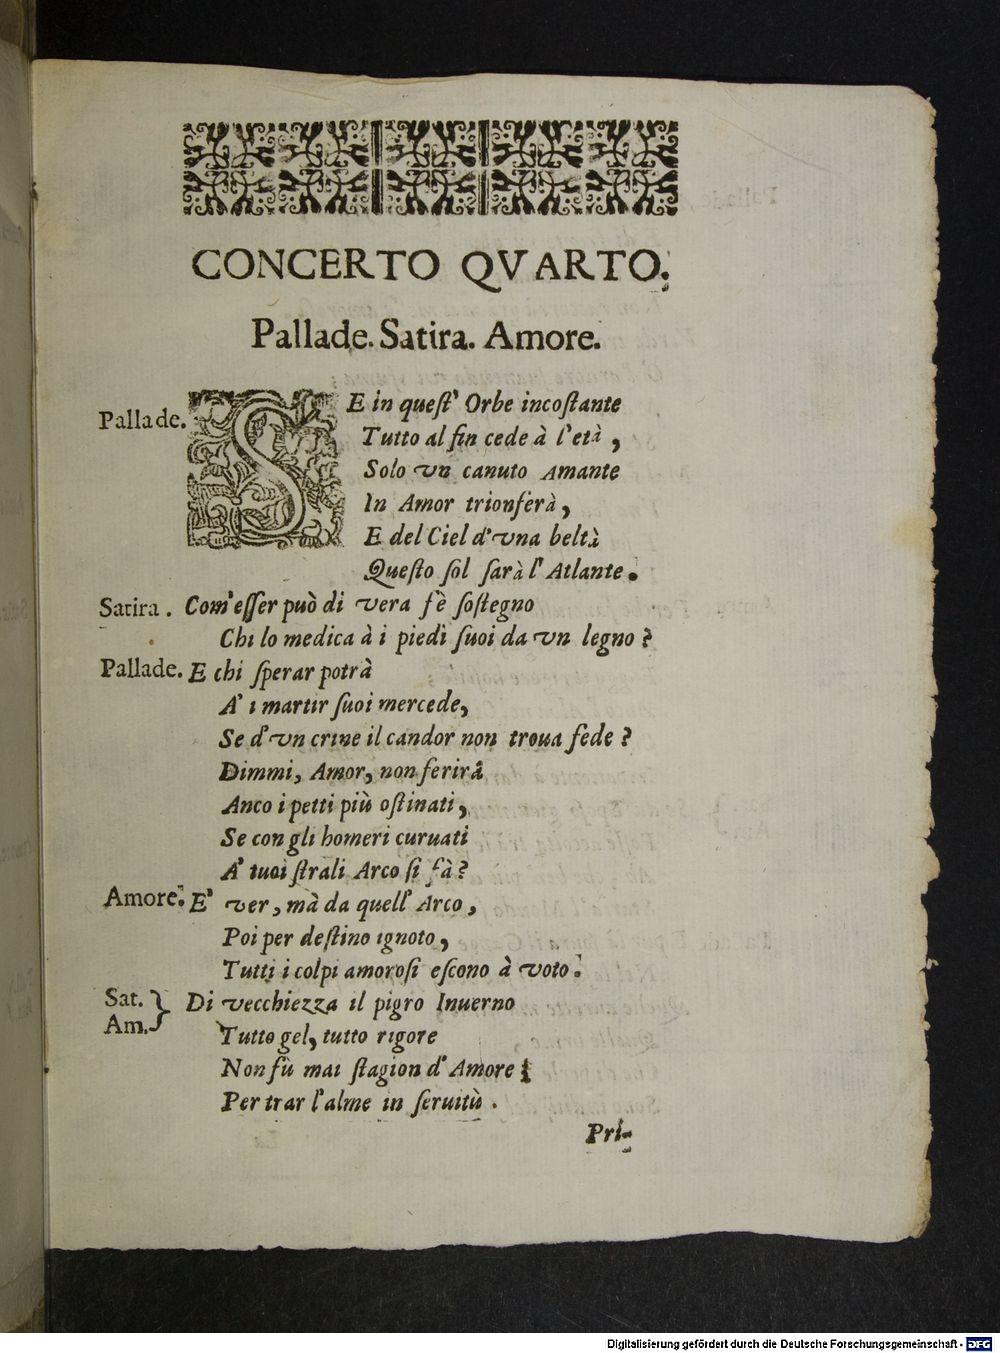 CONCERTO QVARTO.
Pallade. Satira. Amore.
Pallade. SE in quest' Orbe incostante
Tutto al fin cede à l'età ,
Solo vn canuto Amante
In Amor trionferà ,
E del Ciel d'vna beltà
Questo sol sarà l'Atlante .
Satira . Com'esser può di vera fè sostegno
Chi lo medica à i piedi suoi da vn legno ?
Pallade. E chi sperar potrà
A' i martir suoi mercede,
Se d'vn crine il candor non troua fede ?
Dimmi, Amor, non ferirà
Anco i petti più ostinati ,
Se con gli homeri curuati
A' tuoi strali Arco si fà ?
Amore. E' ver , mà da quell' Arco ,
Poi per destino ignoto ,
Tutti i colpi amorosi escono à voto .
Sat. } Di vecchiezza il pigro Inuerno
Am. Tutto gel, tutto rigore
Non fù mai stagion d'Amore
Per trar l'alme in seruitù .
Pri-
Digitalisierung gefördert durch die Deutsche Forschungsgemeinschaft - DFG